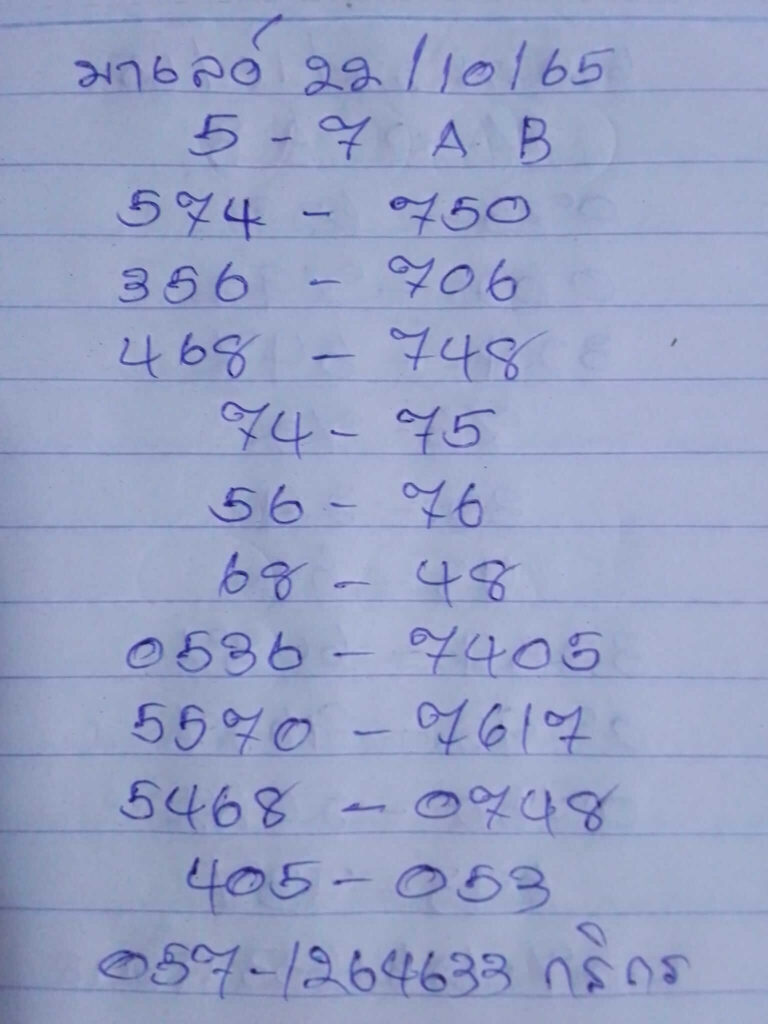 มาเลย์ 22/10/65
5 - 7 A B
574 - 750
356 - 706
468 - 748
74 - 75
56 - 76
68 - 48
0536 - 7405
5570 - 7617
5468 - 0748
405 - 053
057-1264633